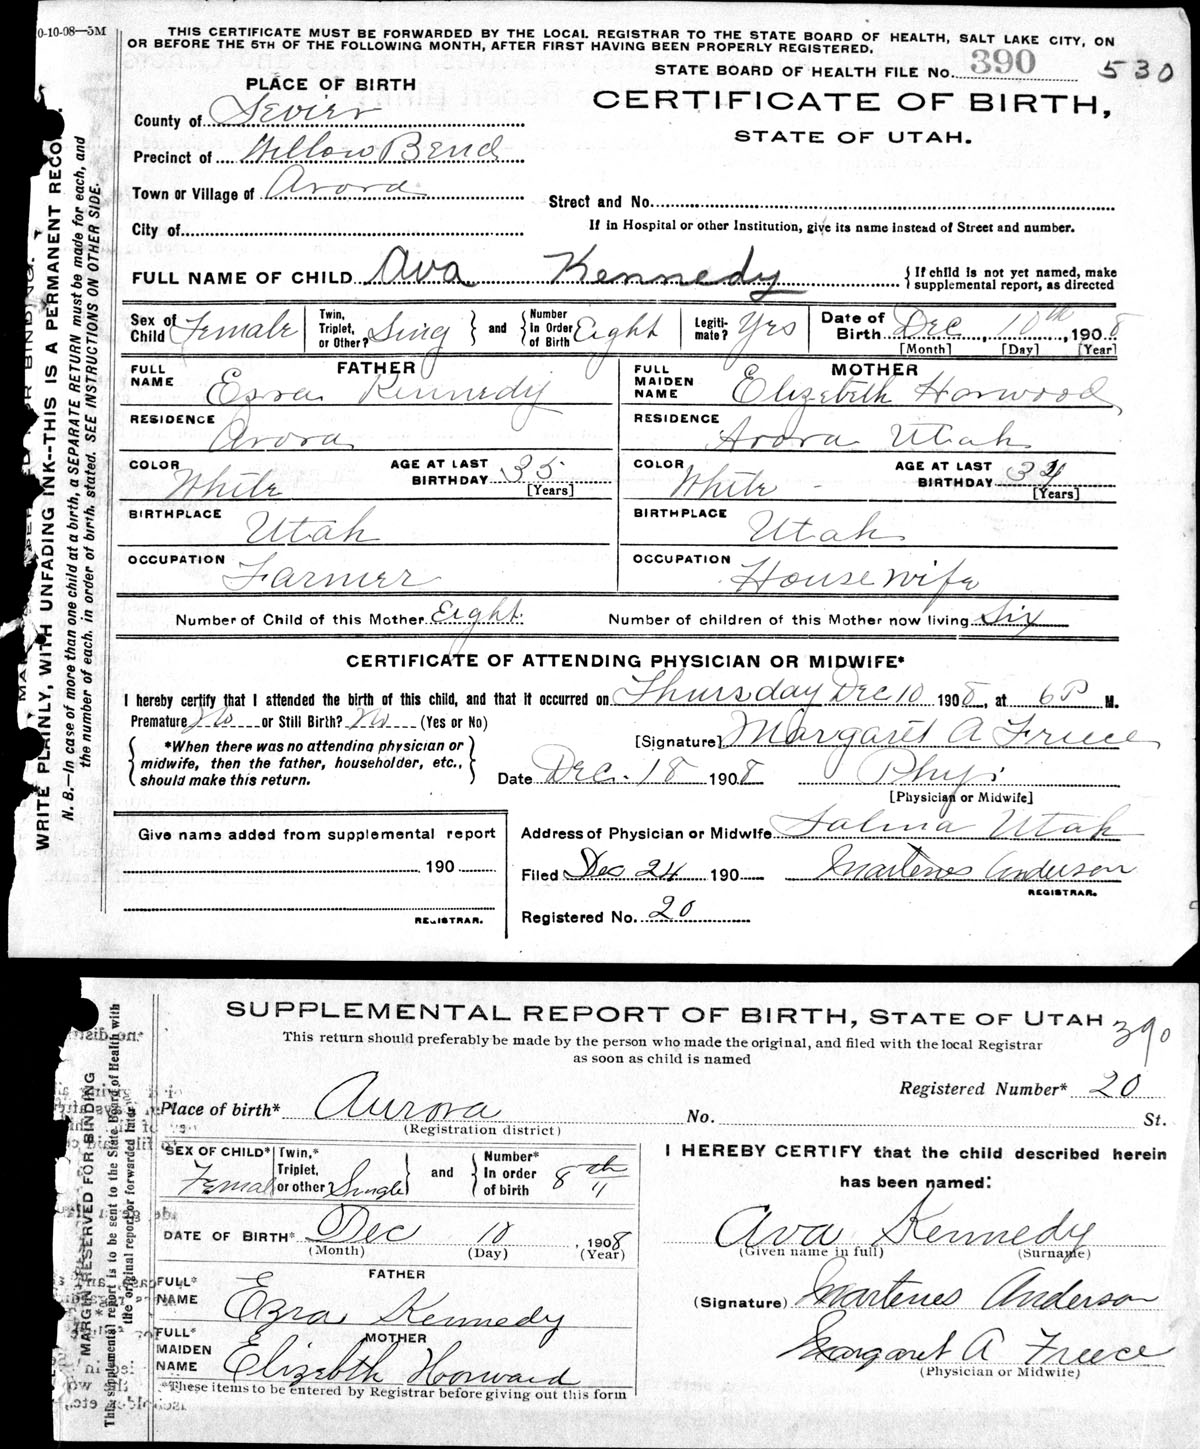 0-10-08—5M
THIS CERTIFICATE MUST BE FORWARDED BY THE LOCAL REGISTRAR TO THE STATE BOARD OF HEALTH, SALT LAKE CITY, ON
OR BEFORE THE 5TH OF THE FOLLOWING MONTH, AFTER FIRST HAVING BEEN PROPERLY REGISTERED.
STATE BOARD OF HEALTH FILE No. 390 530
PLACE OF BIRTH
CERTIFICATE OF BIRTH,
STATE OF UTAH.
County of Sevier
Precinct of Willow Bend
Town or Village of Arora
Street and No.
City of
If in Hospital or other Institution, give its name instead of Street and number.
FULL NAME OF CHILD Ava Kennedy
If child is not yet named, make
supplemental report, as directed
Sex of Child Female
Twin, Triplet, or Other? Sing and Number In Order of Birth Eight
Legiti-mate? Yes
Date of Birth Dec 10th, 1908
[Month] [Day] [Year]
FATHER
FULL NAME Ezra Kennedy
RESIDENCE Arora
COLOR White AGE AT LAST BIRTHDAY 35 [Years]
BIRTHPLACE Utah
OCCUPATION Farmer
MOTHER
FULL MAIDEN NAME Elizebeth Horwood
RESIDENCE Arora Utah
COLOR White - AGE AT LAST BIRTHDAY 34 [Years]
BIRTHPLACE Utah
OCCUPATION Housewife
Number of Child of this Mother Eight Number of children of this Mother now living Six
CERTIFICATE OF ATTENDING PHYSICIAN OR MIDWIFE*
I hereby certify that I attended the birth of this child, and that it occurred on Thursday Dec 10 1908, at 6 P M.
Premature No or Still Birth? No (Yes or No)
*When there was no attending physician or
midwife, then the father, householder, etc.,
should make this return.
[Signature] Margaret A Freece
Date Dec. 18 1908 Phys
[Physician or Midwife]
Give name added from supplemental report
190
REGISTRAR.
Address of Physician or Midwife Salina Utah
Filed Dec 24 190 Martenes Anderson
REGISTRAR.
Registered No. 20
WRITE PLAINLY, WITH UNFADING INK--THIS IS A PERMANENT RECO
N. B.—In case of more than one child at a birth, a SEPARATE RETURN must be made for each, and
the number of each, in order of birth, stated. SEE INSTRUCTIONS ON OTHER SIDE.
SUPPLEMENTAL REPORT OF BIRTH, STATE OF UTAH 390
This return should preferably be made by the person who made the original, and filed with the local Registrar
as soon as child is named
Registered Number* 20
Place of birth* Aurora No. St.
(Registration district)
SEX OF CHILD* Female
Twin,* Triplet, or other Single and Number* In order of birth 8th
DATE OF BIRTH* Dec 10, 1908
(Month) (Day) (Year)
FATHER
FULL* NAME Ezra Kennedy
MOTHER
FULL* MAIDEN NAME Elizebth Horward
*These items to be entered by Registrar before giving out this form
I HEREBY CERTIFY that the child described herein
has been named:
Ava Kennedy
(Given name in full) (Surname)
(Signature) Martenes Anderson
Margaret A Freece
(Physician or Midwife)
MARGIN RESERVED FOR BINDING
This supplemental report is to be sent to the State Board of Health with
the original report or forwarded later